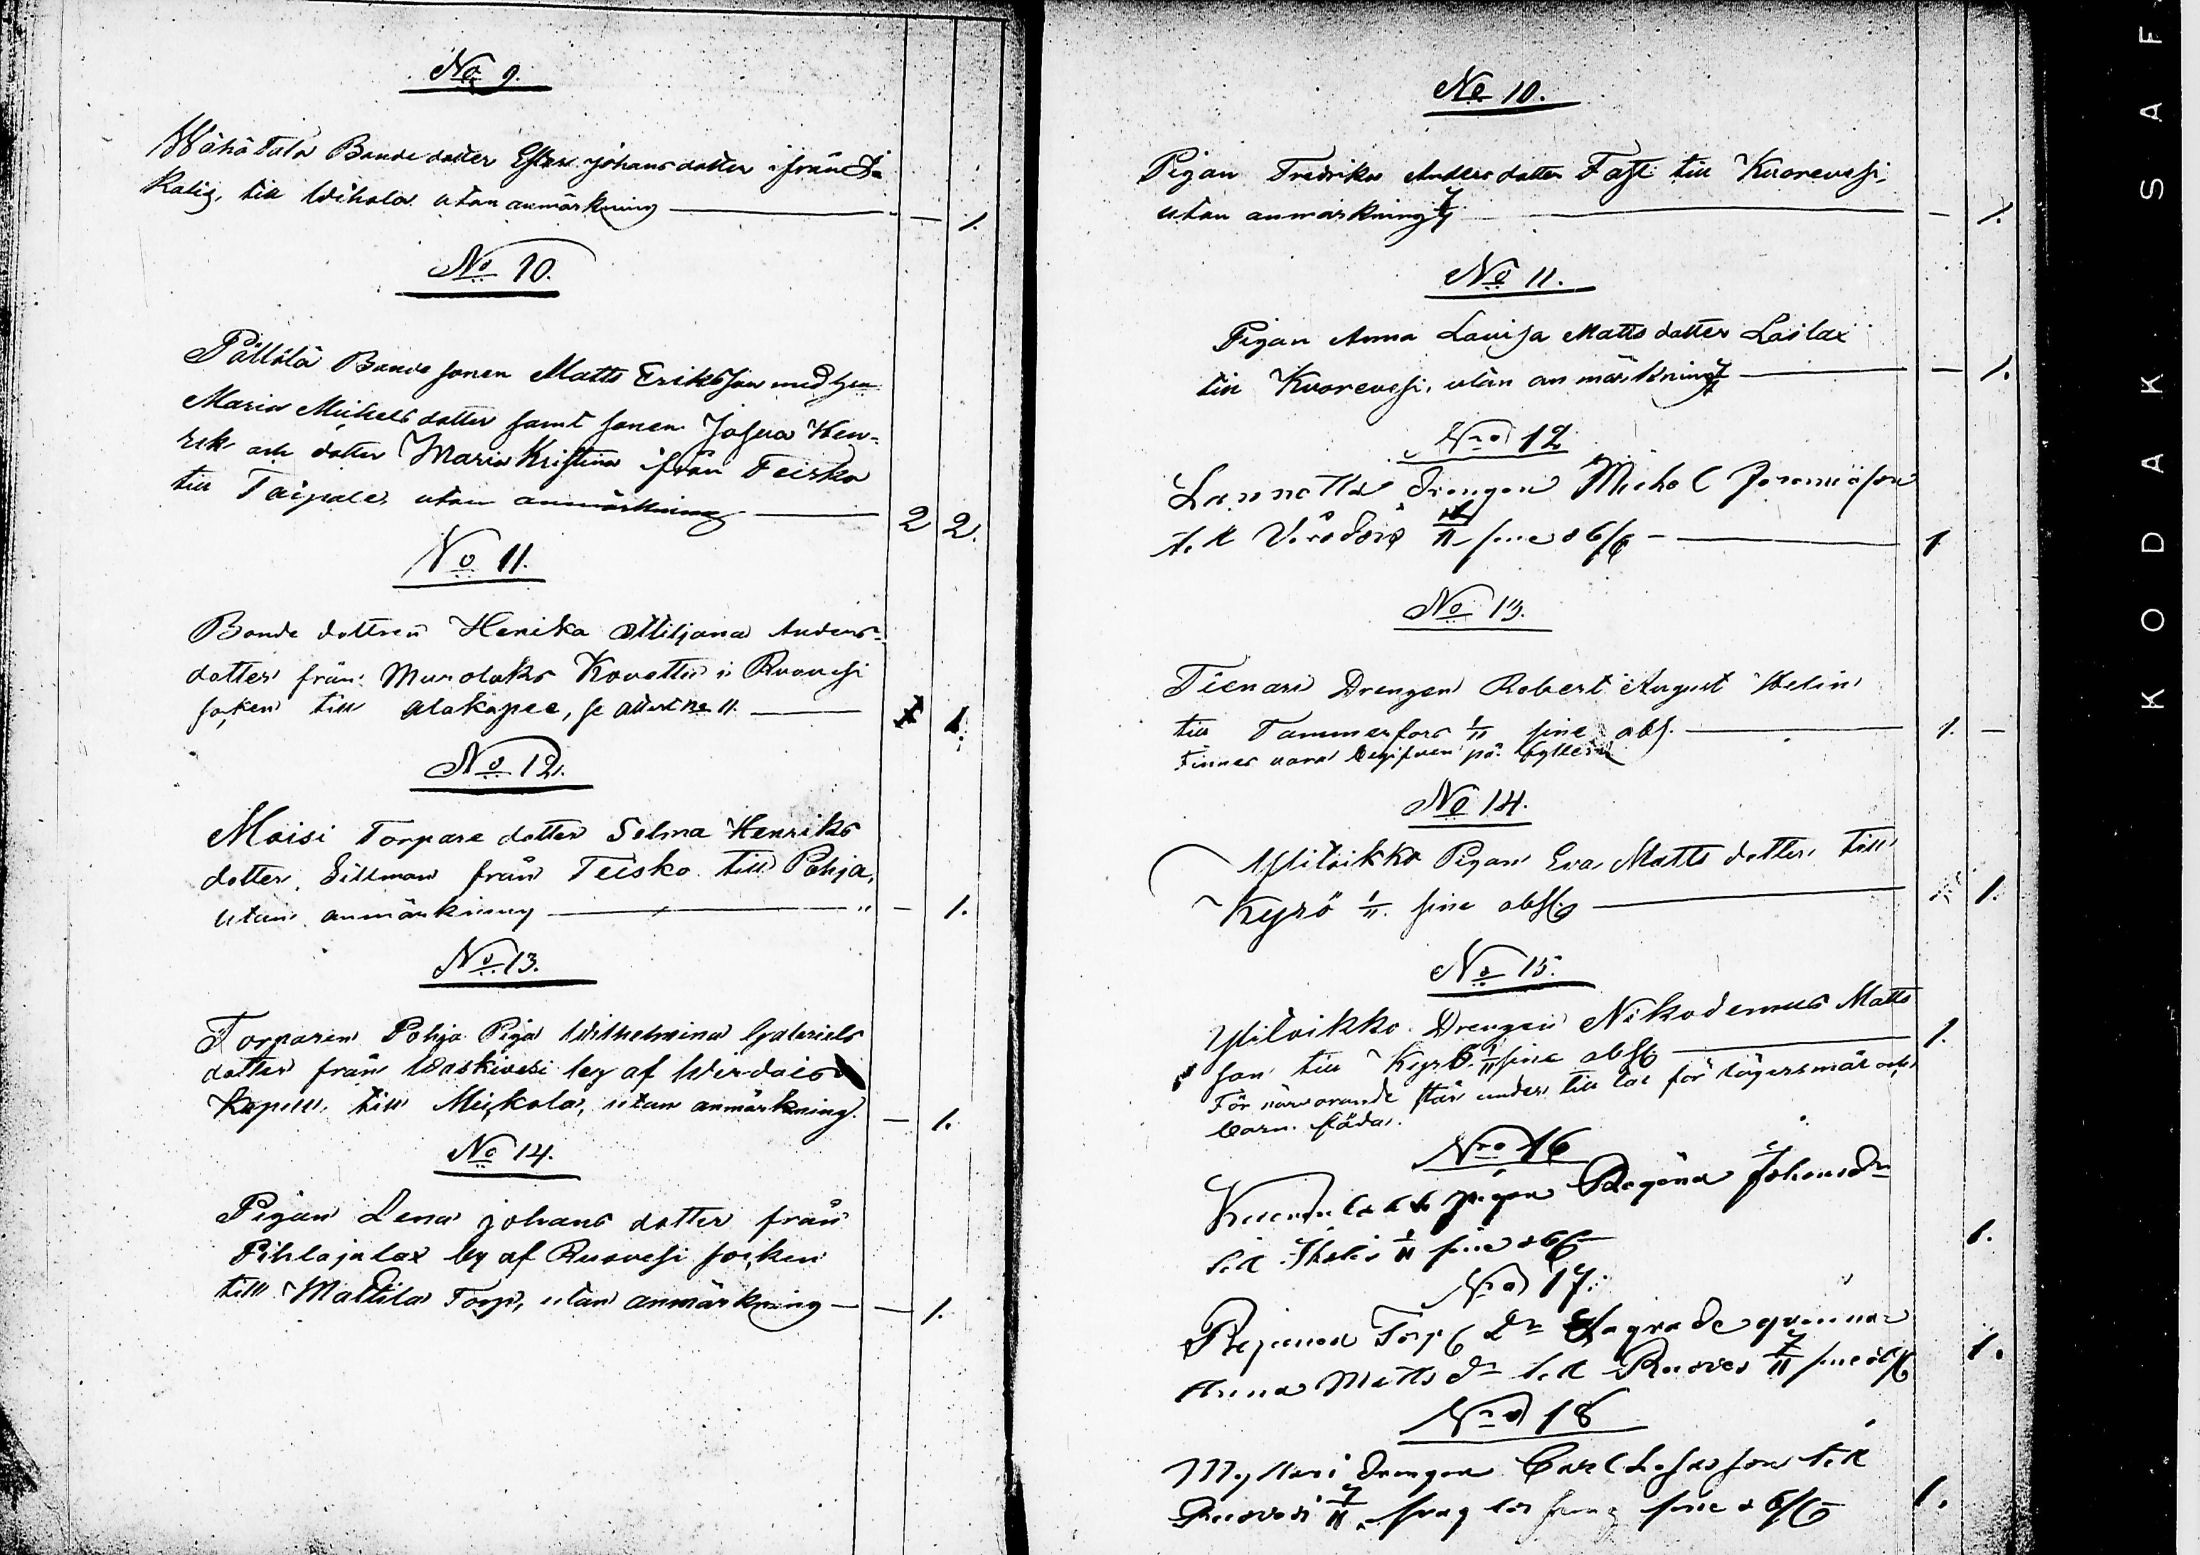 No 9.
Wähä Tala Bonde dotter Ester Johans dotter ifrån
till Wihola utan anmärkning — — 1.
No 10.
Pällilä Bonde sonen Matts Eriksson med
Maria Michels dotter samt sonen Josua Hen-
rik och dotter Maria Kristina ifrån Teisko
till Taipale, utan anmärkning — 2 2.
No 11.
Bonde dottren Henika Miljana Anders-
dotter från Muroloks Kovettu i Ruovesi
socken till Alakapee, se attest No 11. — 1.
No 12.
Moisi Torpare dotter Selma Henriks
dotter Sillman från Teisko till Pohja,
utan anmärkning — " — 1.
No 13.
Torparen Pohja Piga Wilhelmina Gabriels
dotter från Waskivesi by af Wirdois
Kapell till Mickola, utan anmärkning. — 1.
No 14.
Pigan Lena Johans dotter från
Pihlajalax by af Ruovesi socken
till Mattila Torp, utan anmärkning — — 1.
No 10.
Pigan Fredrika Anders dotter Fast till Kuorevesi,
utan anmärkning — — 1.
No 11.
Pigan Anna Lovisa Matts dotter Lailax
till Kuorevesi, utan anmärkning — — 1.
Nro 12
drengen Michel Jeremiason
till Virdois sine obs — 1
No 13.
Tienari Drengen Robert August Helin
till Tammerfors 1/11 sine obs. — 1. —
Finnes vara begifven på fylleri
No 14.
Ylitoikko Pigan Eva Matts dotter till
Kyrö 1/11 sine obs — 1.
No 15.
Ylitoikko Drengen Nikodemus Matts
son till Kyrö 1/11 sine obs — 1.
För närvarande står under till tal för lägersmål och
barn föda.
Nro 16
pigan Regina Johansdr
till 1/11 sine obs — 1.
Nro 17.
Torp Dr Lägrade qvinnan
Anna Matts dr till Ruoves 7/11 sine obs 1.
Nro 18
Myllari drengen Carl son till
Ruovesi 7/11 sine obs 1.
KODAK SAF